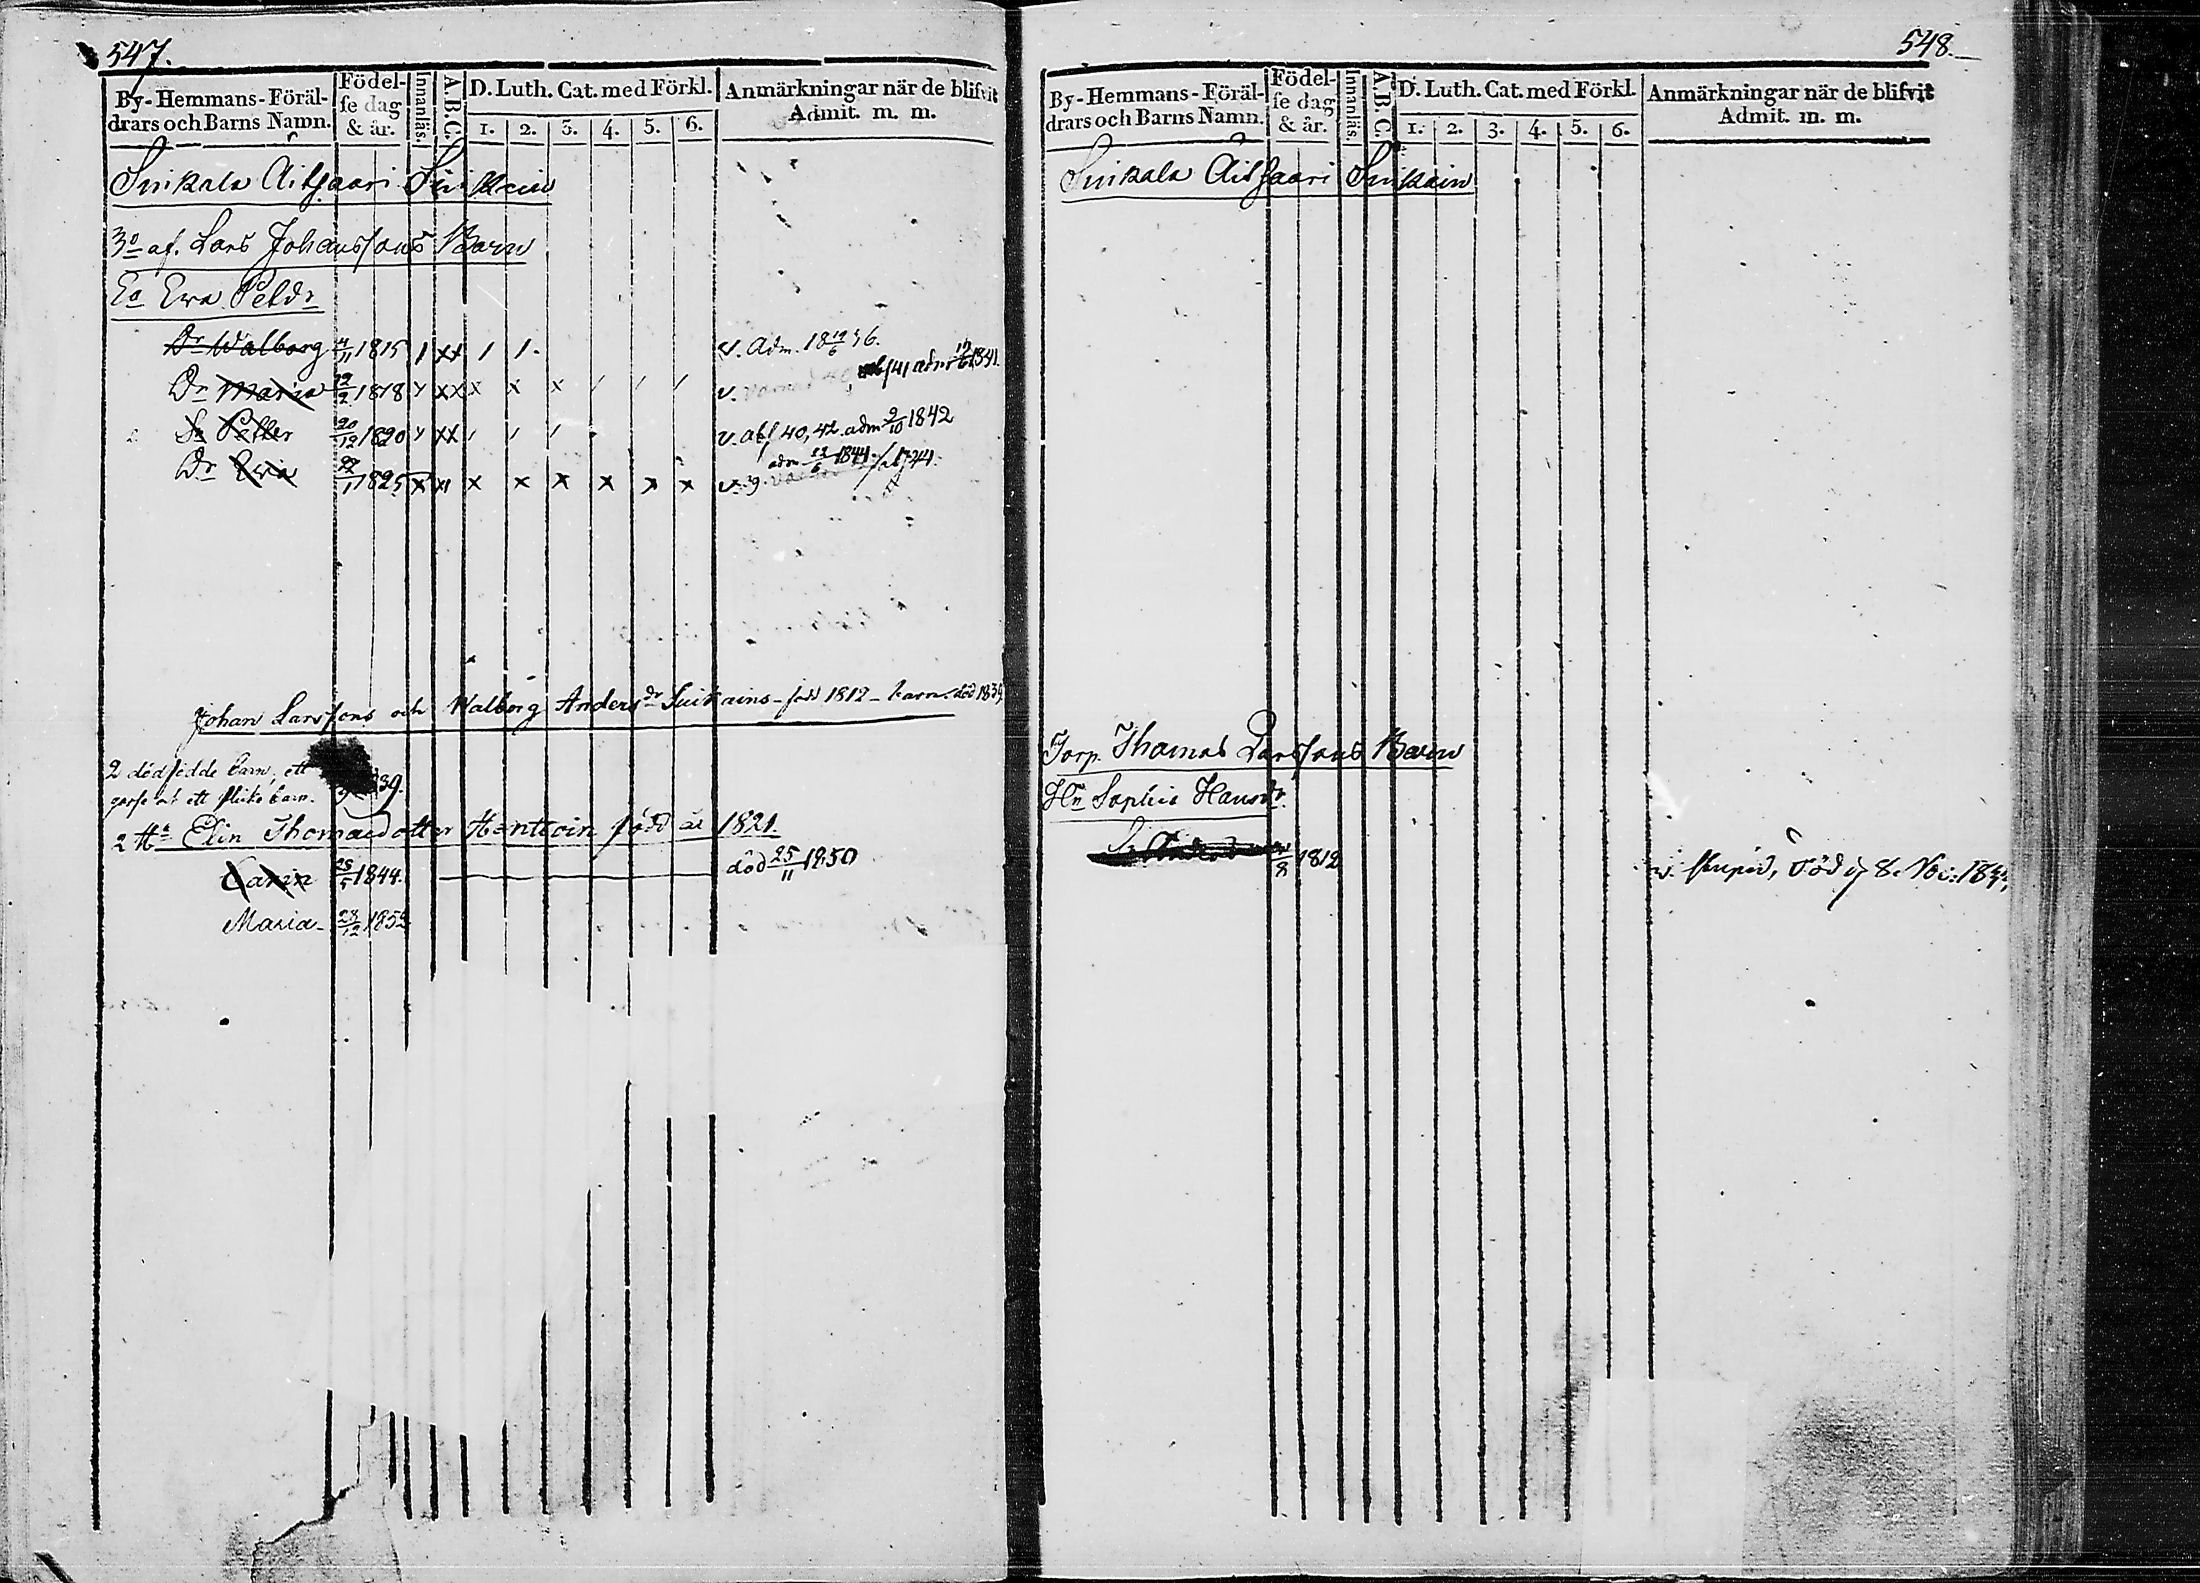 547.
By-Hemmans-Föräl-
drars och Barns Namn.
Födel-
se dag
& år.
Innanläs.
A.B.C.
D. Luth. Cat. med Förkl.
1. 2. 3. 4. 5. 6.
Anmärkningar när de blifvit
Admit. m. m.
Suikala Aitsaari Suikain
3o af. Lars Johanssons Barn
Ea Ewa Petdr
Dr Walborg 11/11 1815 1 xx 1 1. v. Adm. 18 19/6 36.
Dr Maria 19/2 1818 y xx x x x / / / v. abs 41 adm 1841.
Sn Petter 20/12 1820 y xx / / / v. abs 40, 42. adm 9/10 1842
Dr Ewa 27/1 1825 x xx x x x x x x v. 39. adm 23/6 1844.
Johan Larssons och Walborg Andersdr Suikains - född 1812 - barn. död 1839
2 dödfödde barn, ett
gosse och ett flicko barn. 39.
2 Ha Elin Thomasdotter Hentoin född år 1821.
Carin 25/5 1844. död 25/11 1850
Maria - 28/12 185
548.
By-Hemmans-Föräl-
drars och Barns Namn.
Födel-
se dag
& år.
Innanläs.
A.B.C.
D. Luth. Cat. med Förkl.
1. 2. 3. 4. 5. 6.
Anmärkningar när de blifvit
Admit. m. m.
Suikala Aitsaari Suikain
Torp. Thomas Larssons Barn
Hn Sophia Hansdr.
Sn Anders 1812 v. stupid, död 8. Nov: 18